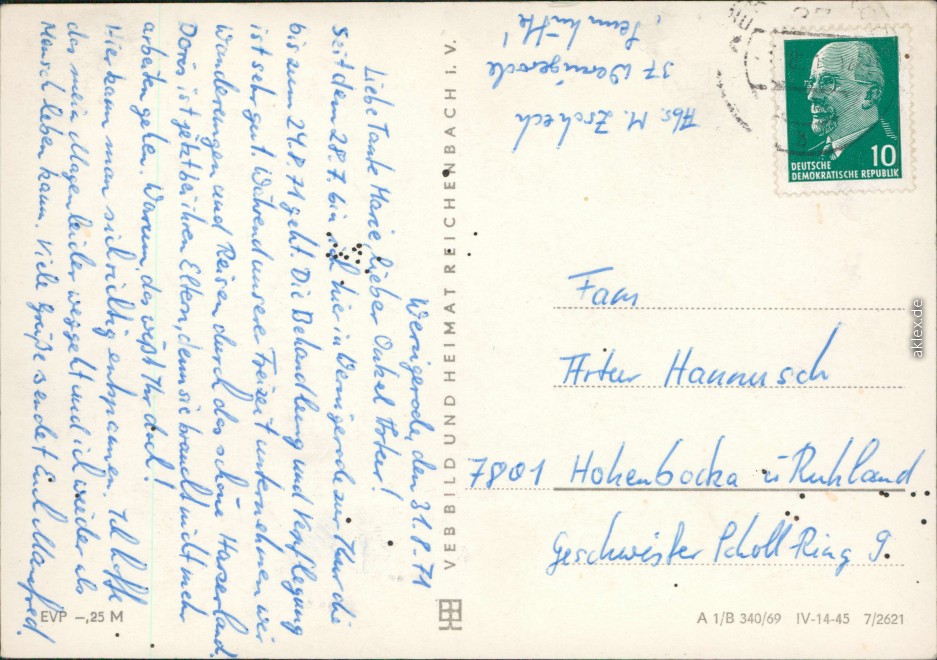 Wernigerode, den 31.8.71
Liebe Tante Marie, lieber Onkel Artur!
Seit dem 28.7. bin ich hier in Wernigerode zur Kur die
bis zum 24.8.71 geht. Die Behandlung und Verpflegung
ist sehr gut. Während unserer Freizeit unternehmen wir
Wanderungen und Reisen durch das schöne Harzerland.
Doris ist jetzt bei ihren Eltern, denn sie braucht nicht mehr
arbeiten gehen. Warum, das wißt Ihr doch!
Hier kann man sich richtig entspannen. Ich hoffe
das mein Magenleiden weggeht und ich wieder als
Mensch leben kann. Viele Grüße sendet Euch Manfred.
EVP –,25 M
VEB BILD UND HEIMAT REICHENBACH I. V.
Abs. M. Zschech
37 Wernigerode
DEUTSCHE
DEMOKRATISCHE REPUBLIK
10
Fam
Artur Hannusch
7801 Hohenbocka ü Ruhland
Geschwister Scholl Ring 9.
A 1/B 340/69 IV-14-45 7/2621
aklex.de